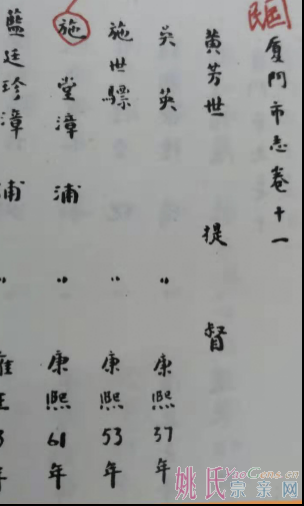 民国
厦门市志卷十一
黄芳世 提督
吴英 〃 康熙37年
施世骠 〃 康熙53年
施堂漳浦 〃 康熙61年
藍廷珍漳浦 〃 雍正3年
姚氏宗亲网
YaoGens.cn